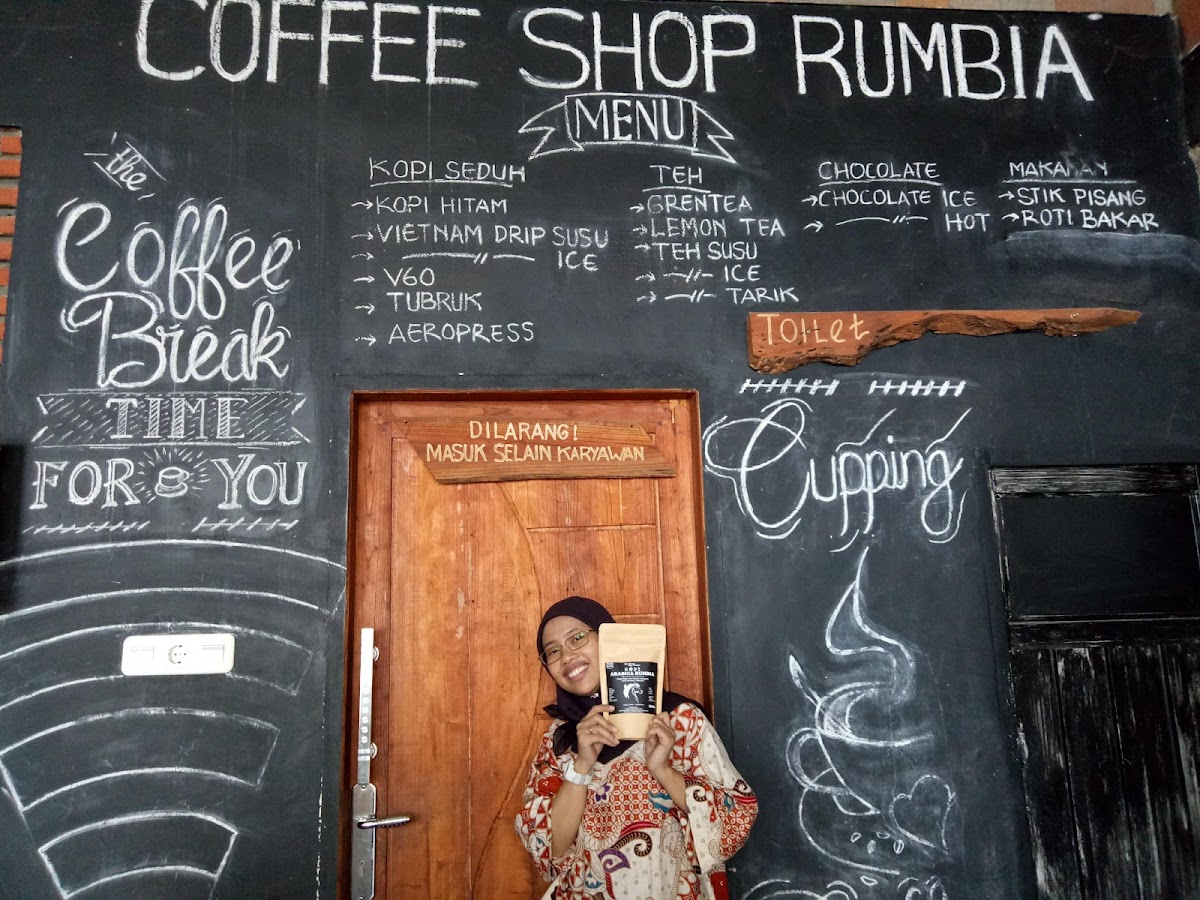 COFFEE SHOP RUMBIA
MENU
the
Coffee
Break
TIME
FOR YOU
KOPI SEDUH
KOPI HITAM
VIETNAM DRIP SUSU
ICE
V60
TUBRUK
AEROPRESS
TEH
GRENTEA
LEMON TEA
TEH SUSU
ICE
TARIK
CHOCOLATE
CHOCOLATE ICE
HOT
MAKANAN
STIK PISANG
ROTI BAKAR
TOILET
DILARANG!
MASUK SELAIN KARYAWAN
Cupping
KOPI
ARABICA RUMBIA